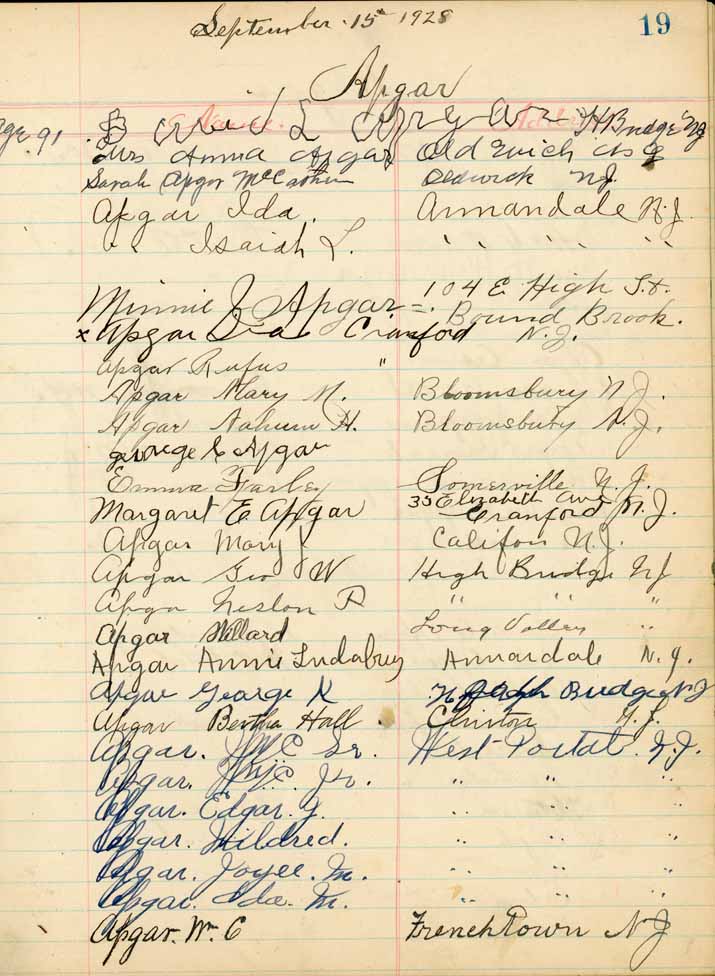 September 15th 1928
19
Apgar
Name. Address
David L Apgar H Bridge NJ
Mrs Anna Apgar Oldwick
Sarah Apgar Oldwick NJ.
Apgar Ida. Annandale N.J.
" Isaiah L. " " "
Minnie J Apgar = 104 E. High St.
Bound Brook.
x Apgar Cranford N.J.
Apgar Rufus "
Apgar Mary M. Bloomsbury N.J.
Apgar Nahum H. Bloomsbury N.J.
george E Apgar
Emma Farley Somerville N.J.
Margaret E. Apgar 35 Elizabeth Ave
Cranford N.J.
Apgar Mary J. Califon N.J.
Apgar Geo W High Bridge NJ
Apgar R " " "
Apgar Willard Long Valley "
Apgar Annie Indabury Annandale N.J.
Apgar George K High Bridge NJ
Apgar Bertha Hall. Clinton N.J.
Apgar. Sr. West Portal. N.J.
Apgar. Jr. " " "
Apgar. Edgar. " " "
Apgar. Mildred. " " "
Apgar. Joyce. M. " " "
Apgar. Ida. M. " " "
Apgar. Wm. C FrenchTown NJ